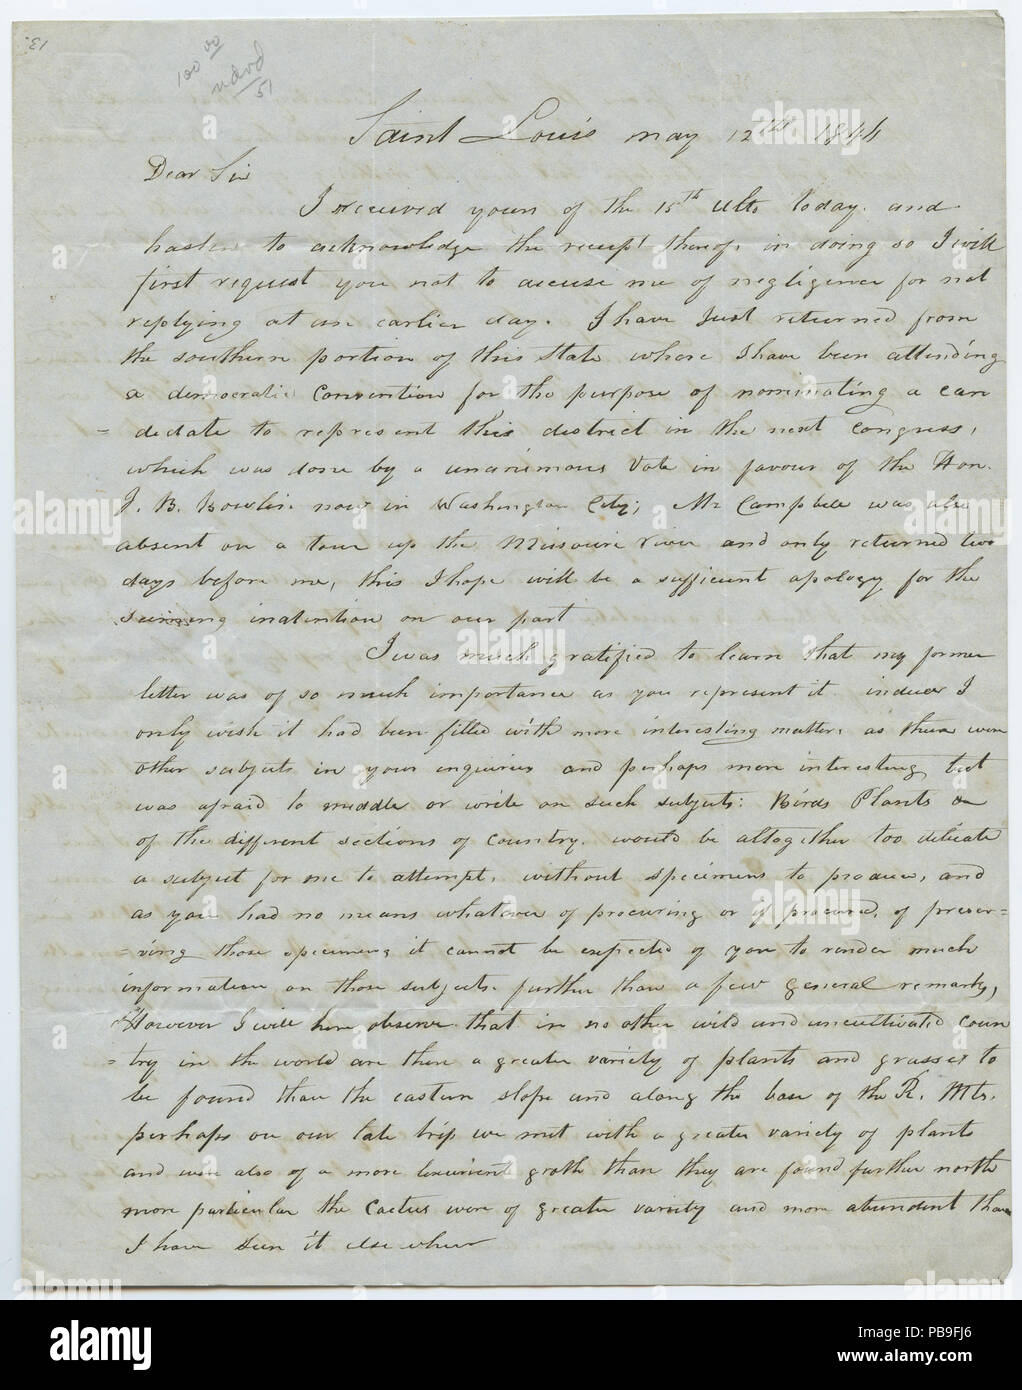 13.
100 00
ndvd
51
Saint Louis may 12th 1844
Dear Sir
I received yours of the 15th Ulto today. and
hasten to acknowledge the receipt thereof, in doing so I will
first request you not to accuse me of negligence for not
replying at an earlier day. I have Just returned from
the southern portion of this State where I have been attending
a democratic Convention for the purpose of nominating a can
= dedate to represent this district in the next Congress,
which was done by a unanimous Vote in favour of the Hon.
J. B. Bowlin now in Washington City; Mr Campbell was also
absent on a tour up the Missourie river and only returned two
days before me, this I hope will be a sufficient apology for the
inatention on our part
I was much gratified to learn that my former
letter was of so much importance as you represent it indeed I
only wish it had been filled with more interesting matter, as there were
other subjects in your enquiries and perhaps more interesting but
was afraid to middle or write on such subjects: Birds Plants &c
of the different sections of country. would be altogether too delicate
a subject for me to attempt, without specimens to produce, and
as you had no means whatever of procuring or if procured, of preser=
=ving those specimens it cannot be expected of you to render much
information on those subjects further than a few general remarks,
However I will here observe that in no other wild and uncultivated coun
= try in the world are there a greater variety of plants and grasses to
be found than the eastern slope and along the base of the R. Mts.
perhaps on our late trip we met with a greater variety of plants
and were also of a more luxurient groth than they are found further north
more particular the Cactus were of greater variety and more abundent than
I have seen it elsewhere
alamy
Image ID: PB9FJ6
www.alamy.com